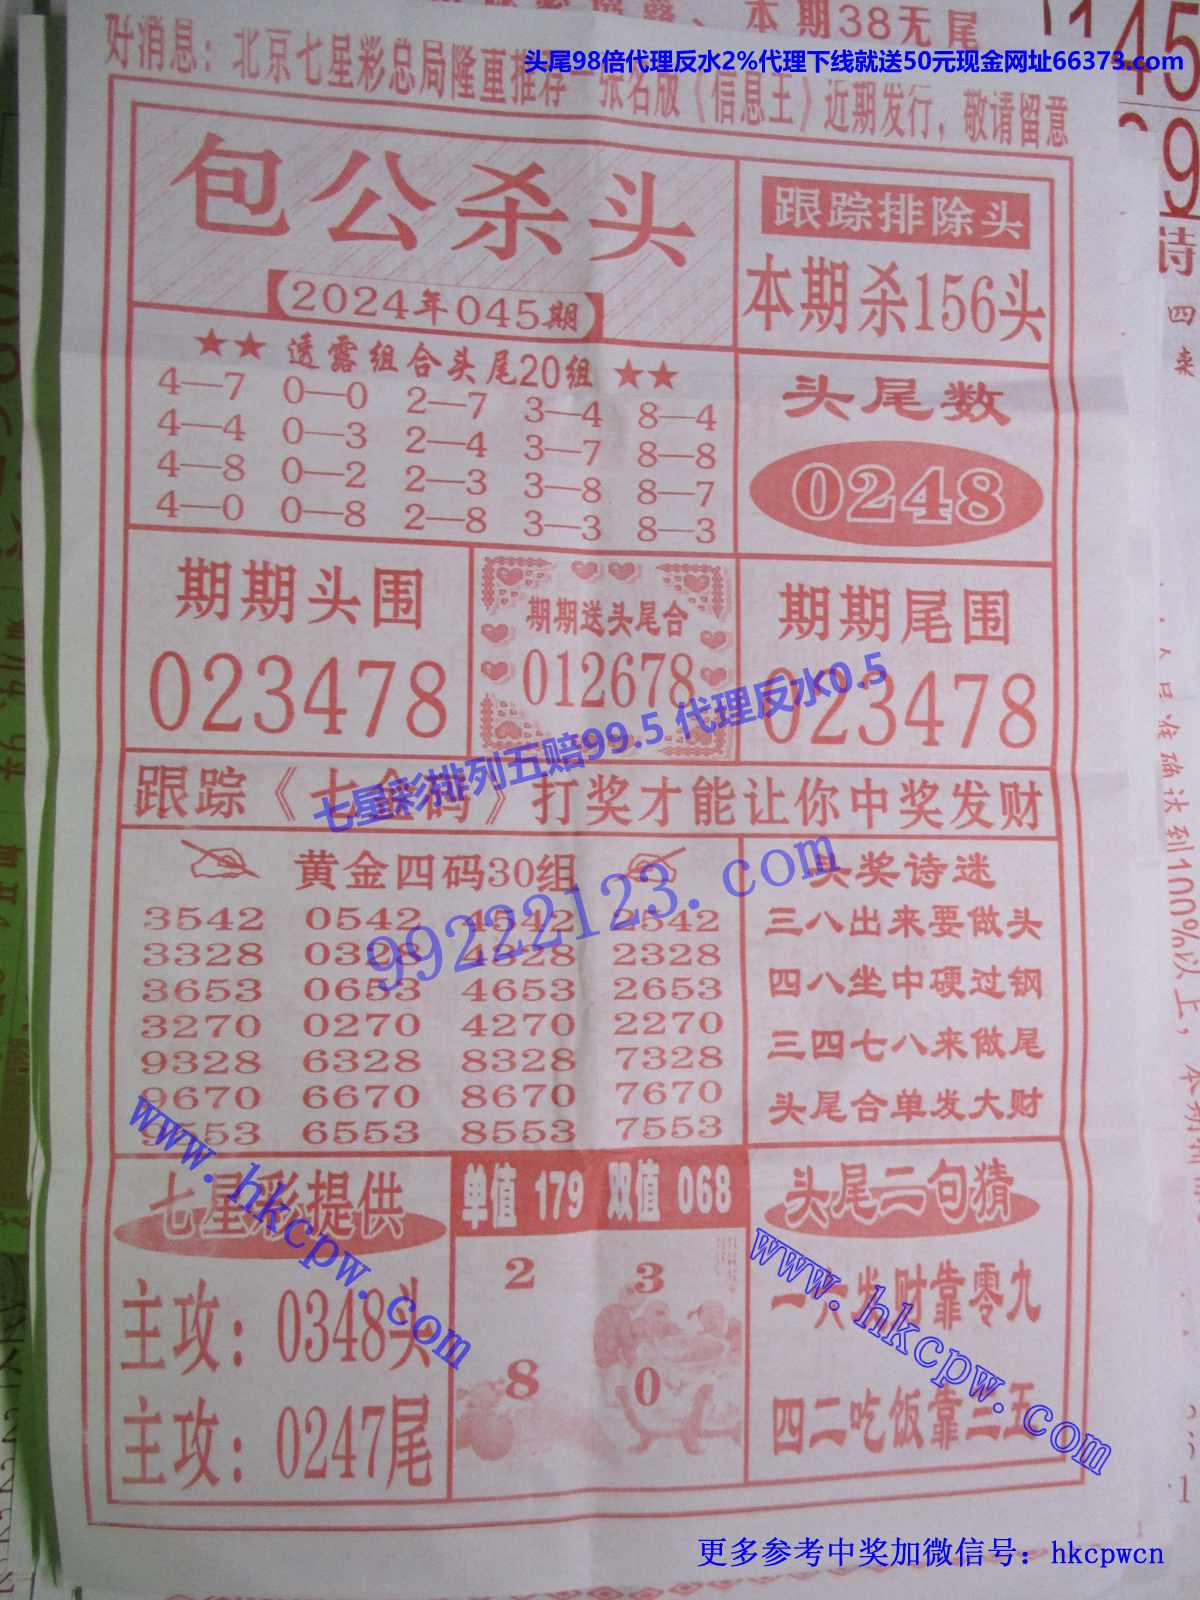 本期38无尾
头尾98倍代理反水2%代理下线就送50元现金网址66373.com
好消息：北京七星彩总局隆重推荐一张名版《信息王》近期发行，敬请留意
包公杀头
【2024年045期】
跟踪排除头
本期杀156头
★★ 透露组合头尾20组 ★★
4—7 0—0 2—7 3—4 8—4
4—4 0—3 2—4 3—7 8—8
4—8 0—2 2—3 3—8 8—7
4—0 0—8 2—8 3—3 8—3
头尾数
0248
期期头围
023478
期期送头尾合
012678
期期尾围
023478
七星彩排列五赔99.5 代理反水0.5
跟踪《七金码》打奖才能让你中奖发财
黄金四码30组
3542 0542 4542 2542
3328 0328 4328 2328
3653 0653 4653 2653
3270 0270 4270 2270
9328 6328 8328 7328
9670 6670 8670 7670
9553 6553 8553 7553
99222123.com
头奖诗迷
三八出来要做头
四八坐中硬过钢
三四七八来做尾
头尾合单发大财
www.hkcpw.com
七星彩提供
主攻：0348头
主攻：0247尾
单值 179 双值 068
2 3
8 0
头尾二句猜
一六发财靠零九
四二吃饭靠三五
www.hkcpw.com
145
9
诗
四
更多参考中奖加微信号：hkcpwcn